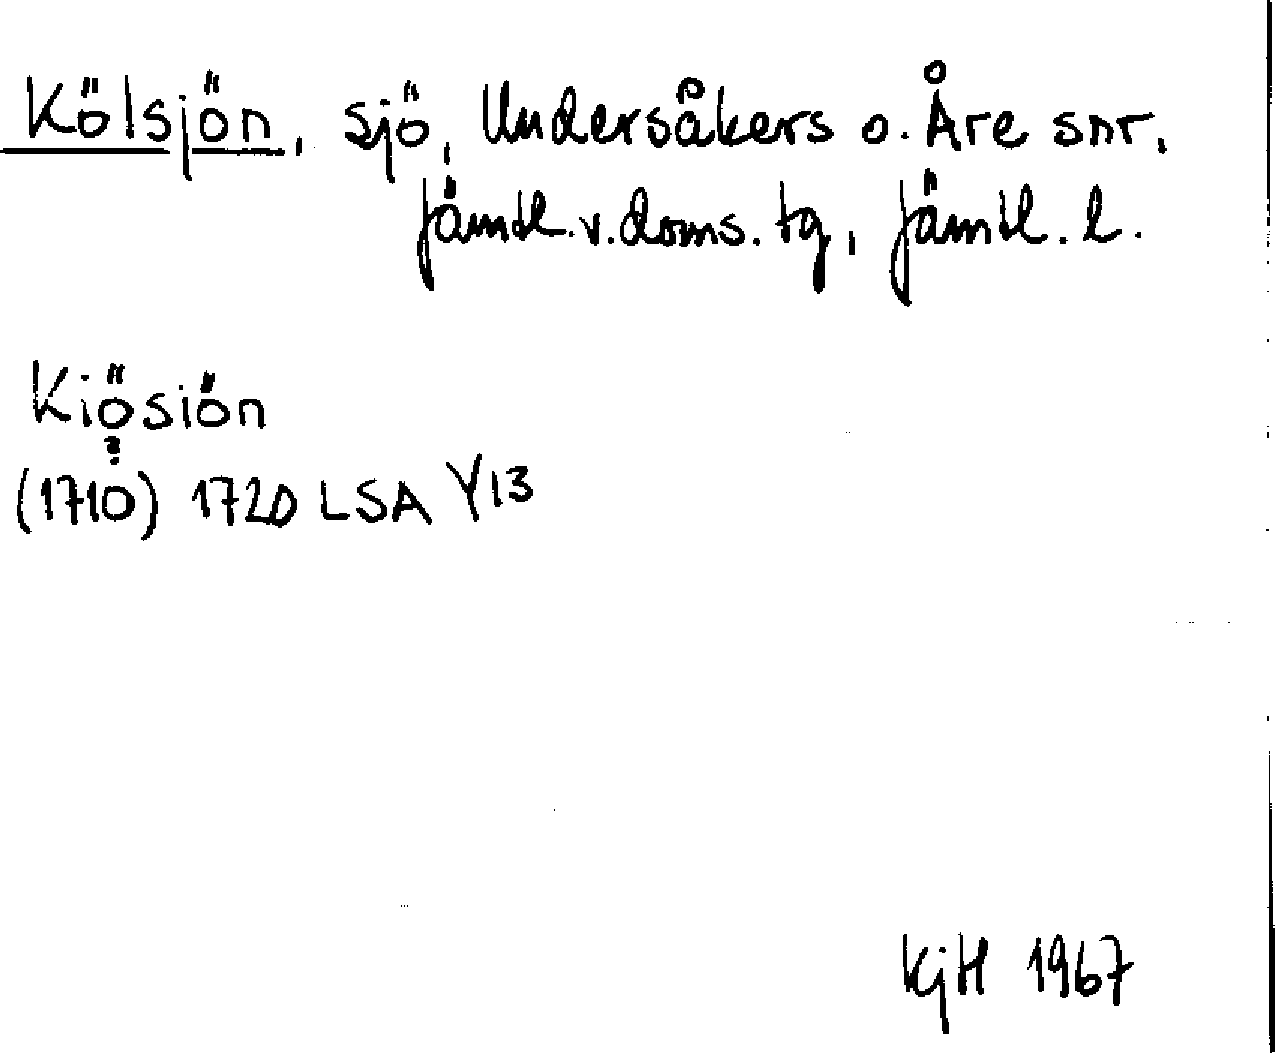 Kölsjön, sjö, Undersåkers o. Åre snr,
Jämtl. v. doms. tg, Jämtl. l.
Kiösiön
?
(1710) 1720 LSA Y13
KjH 1967